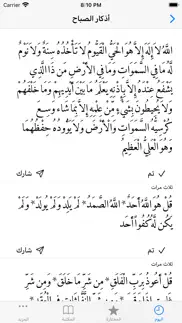 6:10 PM
أذكار الصباح
اللَّهُ لَا إِلَهَ إِلَّا هُوَ الْحَيُّ الْقَيُّومُ لَا تَأْخُذُهُ سِنَةٌ وَلَا نَوْمٌ
لَّهُ مَا فِي السَّمَاوَاتِ وَمَا فِي الْأَرْضِ مَن ذَا الَّذِي
يَشْفَعُ عِندَهُ إِلَّا بِإِذْنِهِ يَعْلَمُ مَا بَيْنَ أَيْدِيهِمْ وَمَا خَلْفَهُمْ
وَلَا يُحِيطُونَ بِشَيْءٍ مِّنْ عِلْمِهِ إِلَّا بِمَا شَاءَ وَسِعَ
كُرْسِيُّهُ السَّمَاوَاتِ وَالْأَرْضَ وَلَا يَئُودُهُ حِفْظُهُمَا
وَهُوَ الْعَلِيُّ الْعَظِيمُ
تم
شارك
ثلاث مرات
قُلْ هُوَ اللَّهُ أَحَدٌ* اللَّهُ الصَّمَدُ* لَمْ يَلِدْ وَلَمْ يُولَدْ* وَلَمْ
يَكُن لَّهُ كُفُوًا أَحَدٌ
تم
شارك
ثلاث مرات
قُلْ أَعُوذُ بِرَبِّ الْفَلَقِ* مِن شَرِّ مَا خَلَقَ* وَمِن شَرِّ
اليوم
المكتبة
المزيد